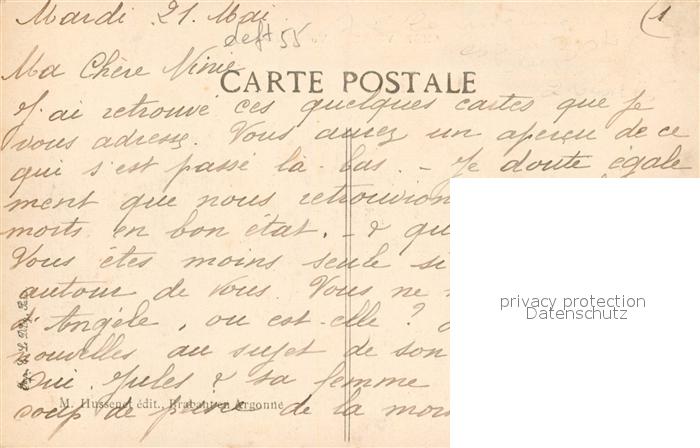 Mardi 21 Mai
(1
dept 55
Ma Chère Ninie
CARTE POSTALE
J'ai retrouvé ces quelques cartes que je
vous adresse. Vous aurez un aperçu de ce
qui s'est passé là-bas. - Je doute égale
ment que nous retrouvion
morts en bon état. - & qu
Vous êtes moins seule si
autour de vous. Vous ne
d'Angèle, ou est-elle? J
nouvelles au sujet de son
Oui Jules & sa femme
M. Hussenet édit., Brabant en Argonne
coup de peine de la mor
privacy protection
Datenschutz